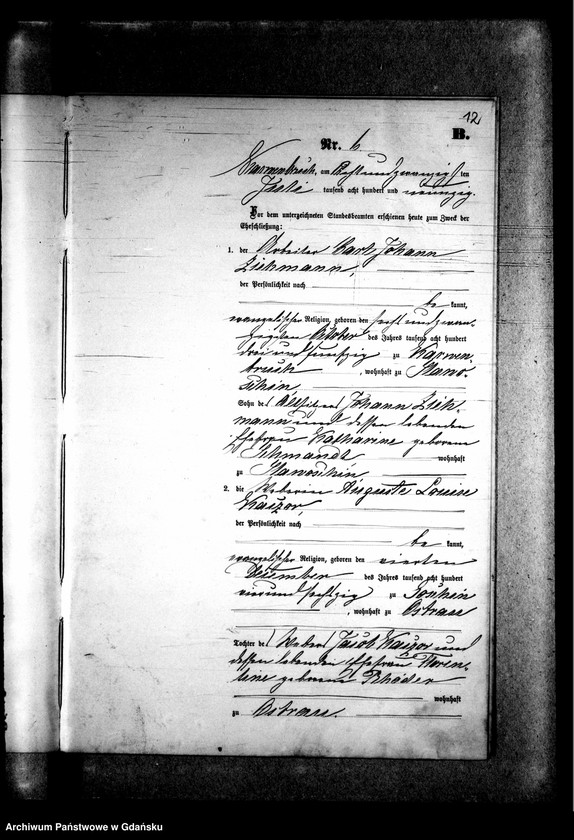 12
B.
Nr. 6
Karmenbruch, am sechsundzwanzigsten
tausend acht hundert und neunzig.
Vor dem unterzeichneten Standesbeamten erschienen heute zum Zweck der
Eheschließung:
1. der Arbeiter Carl Johann
der Persönlichkeit nach
be kannt,
evangelischer Religion, geboren den sechsundzwan-
zigsten Oktober des Jahres tausend acht hundert
dreiundfünfzig zu Karmen-
bruch, wohnhaft zu Slawo-
schin,
Sohn des Johann
mann und dessen lebenden
Ehefrau Katharine geborene
Schmandt wohnhaft
zu Slawoschin,
2. die Weberin Auguste Louise
der Persönlichkeit nach
be kannt,
evangelischer Religion, geboren den vierten
Dezember des Jahres tausend acht hundert
vierundsechzig zu
, wohnhaft zu Ostrau
Tochter des Weber Jacob und
dessen lebenden Ehefrau Floren-
tine geborene Rhoder
wohnhaft
zu Ostrau.
Archiwum Państwowe w Gdańsku